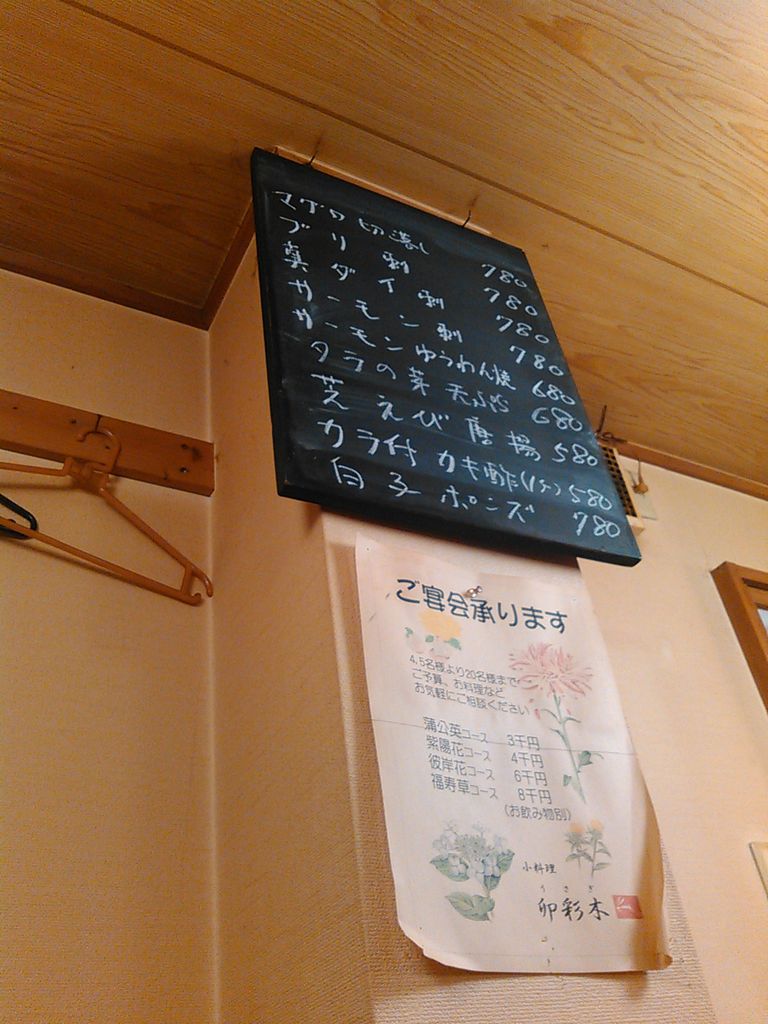 マグロ切落し 780
ブリ刺 780
真ダイ刺 780
サーモン刺 780
サーモンゆうわん焼 680
タラの芽天ぷら 680
芝えび唐揚 580
カラ付カキ酢(1ヶ) 580
白子ポンズ 780
ご宴会承ります
4,5名様より20名様まで
ご予算、お料理など
お気軽にご相談ください
蒲公英コース 3千円
紫陽花コース 4千円
彼岸花コース 6千円
福寿草コース 8千円
(お飲み物別)
小料理
うさぎ
卯彩木